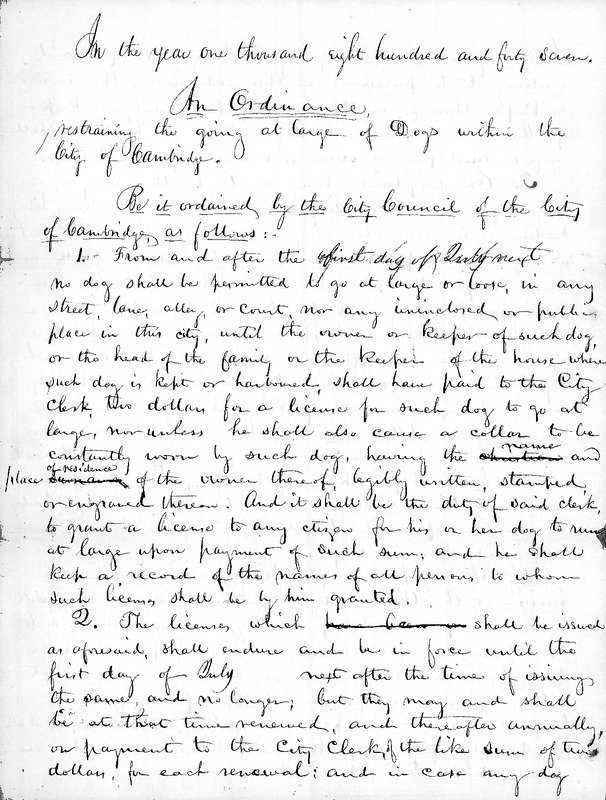 In the year one thousand eight hundred and forty seven.
An Ordinance,
restraining the going at large of Dogs within the
City of Cambridge.
Be it ordained by the City Council of the City
of Cambridge, as follows:-
1. From and after the first day of July next
no dog shall be permitted to go at large or loose, in any
street, lane, alley, or court, nor any uninclosed or public
place in this city, until the owner or keeper of such dog,
or the head of the family or the keeper of the house where
such dog is kept or harboured, shall have paid to the City
Clerk two dollars for a license for such dog to go at
large, nor unless he shall also cause a collar to be
constantly worn by such dog, having the christian name and
place surname of residence of the owner thereof, legibly written, stamped,
or engraved thereon. And it shall be the duty of said clerk,
to grant a license to any citizen for his or her dog to run
at large upon payment of such sum; and he shall
keep a record of the names of all persons to whom
such licenses shall be by him granted.
2. The licenses which have been shall be issued
as aforesaid, shall endure and be in force until the
first day of July next after the time of issuing
the same, and no longer; but they may and shall
be at that time renewed, and thereafter annually,
on payment to the City Clerk, of the like sum of two
dollars, for each renewal: and in case any dog